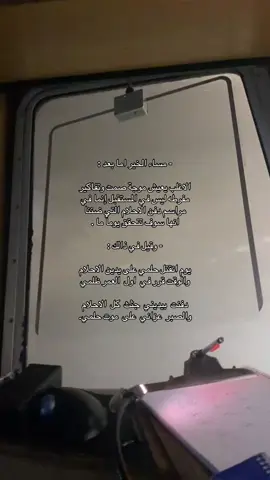 - مساء الخير اما بعد :
الاغلب يعيش موجة صمت وتفاكير
مفرطه ليس في المستقبل إنما في
مراسم دفن الاحلام التي ضننا
انها سوف تتحقق يوماً ما .
- وقيل في ذلك :
يوم انقتل حلمي على يدين الاحلام
والوقت قرر في اول العمر ظلمي
دفنت بيديني جثث كل الاحلام
والصبر عزاني على موت حلمي.